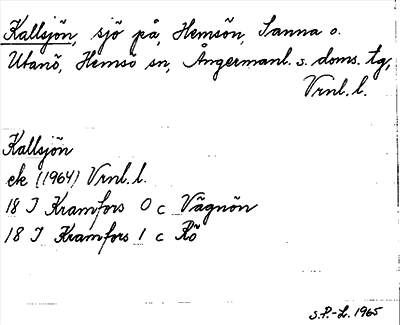 Kallsjön, sjö på, Hemsön, Sanna o.
Utanö, Hemsö sn, Ångermanl. s. doms. tg,
Vrnl. l.
Kallsjön
ek (1964) Vrnl. l.
18 I Kramfors 0 c Vägnön
18 I Kramfors 1 c Rö
S.P.-L. 1965